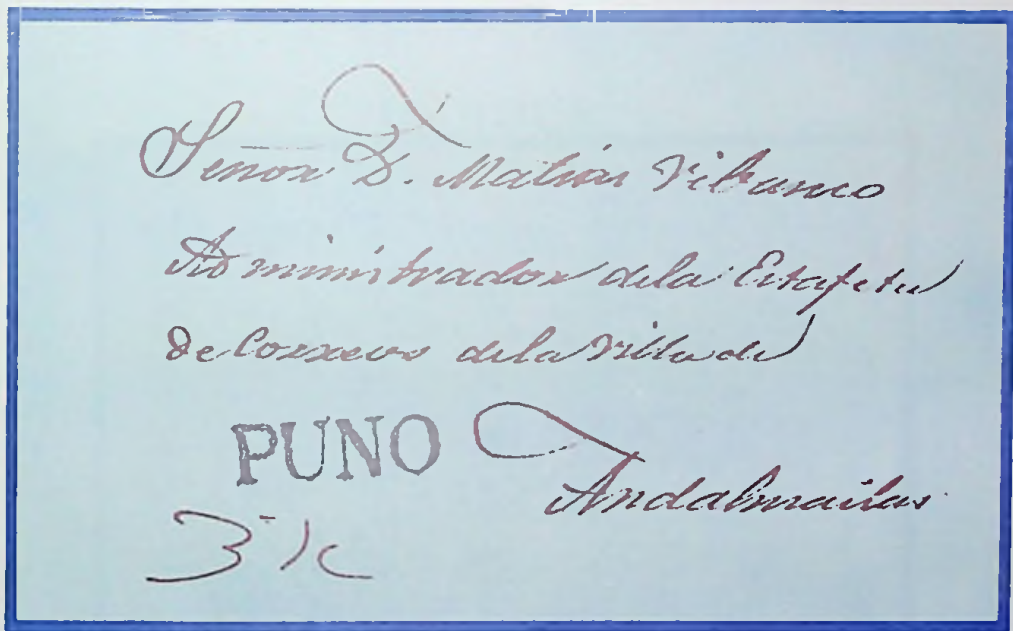 Señor D. Matias Vibanco
Administrador dela Estafeta
de Correos dela Villa de
PUNO
Andahuailas